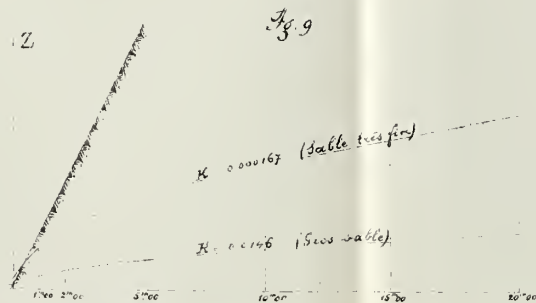 Fig. 9
Z
K 0.000167 (Sable très fin)
K 0.00146 (Gros sable)
1ᵐ00 2ᵐ00 5ᵐ00 10ᵐ00 15ᵐ00 20ᵐ00